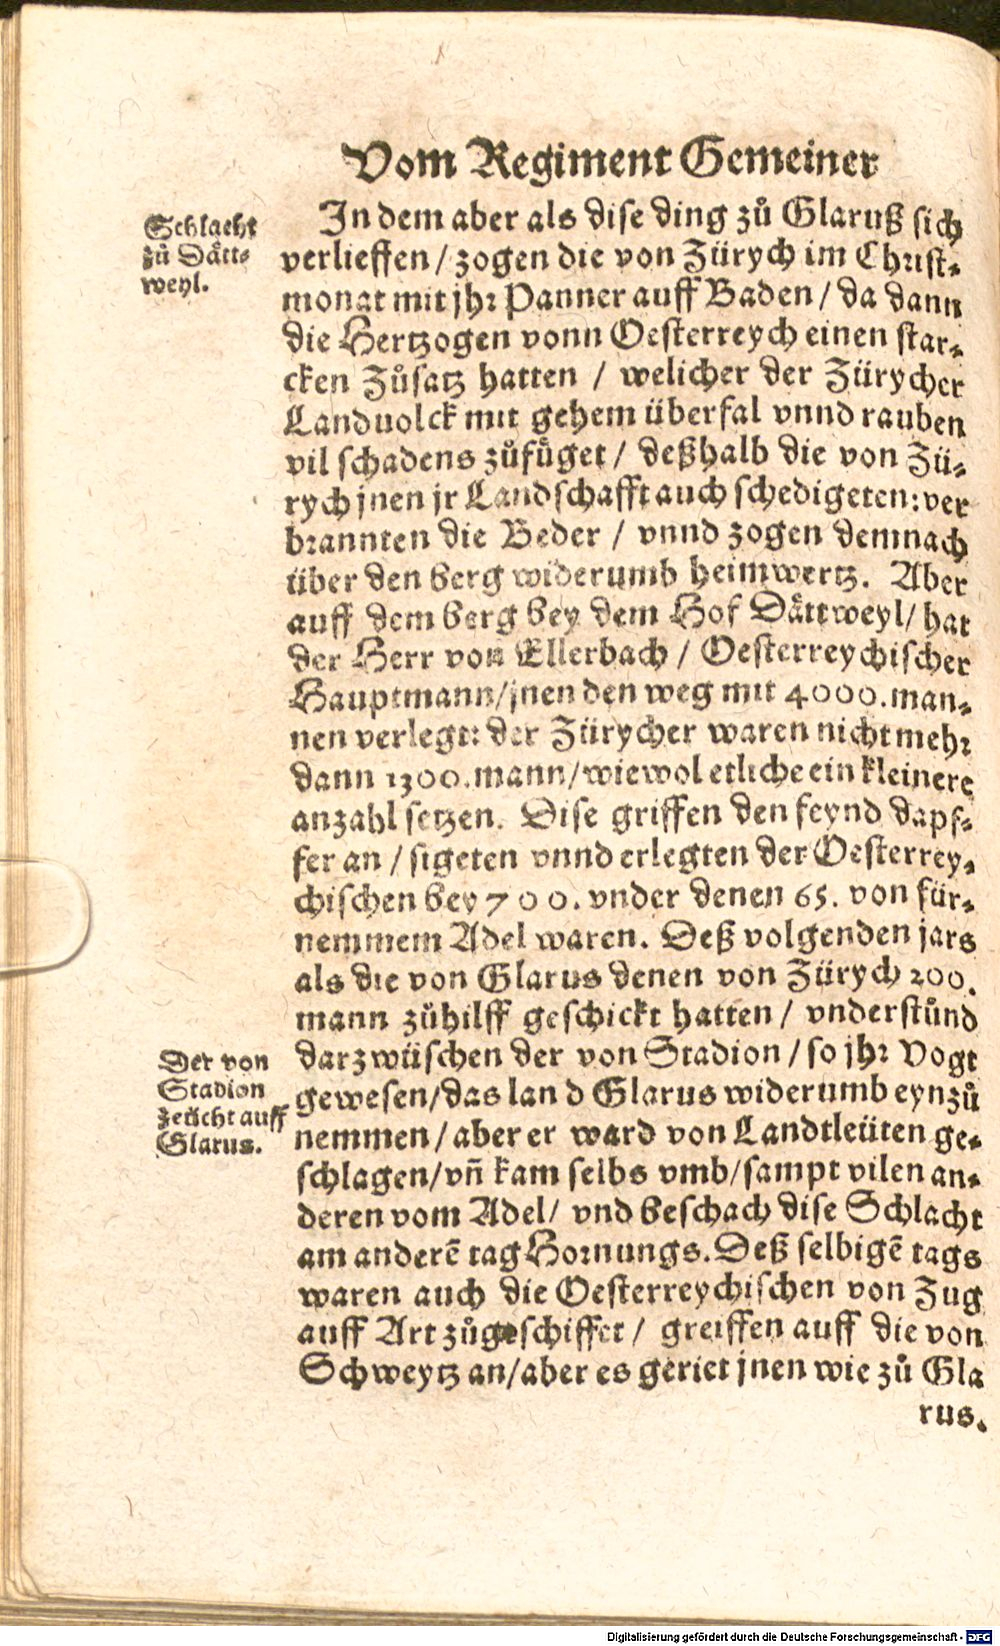 Vom Regiment Gemeiner
Schlacht
zů Dått-
weyl.
In dem aber als dise ding zů Glaruß sich
verlieffen / zogen die von Zürych im Christ-
monat mit jhr Panner auff Baden / da dann
die Hertzogen vonn Oesterreych einen star-
cken Zůsatz hatten / welicher der Zürycher
Landuolck mit gehem überfal vnnd rauben
vil schadens zůfůget / deßhalb die von Zü-
rych jnen jr Landschafft auch schedigeten: ver
brannten die Beder / vnnd zogen demnach
über den berg widerumb heimwertz. Aber
auff dem berg bey dem Hof Dåttweyl / hat
der Herr von Ellerbach / Oesterreychischer
Hauptmann / jnen den weg mit 4000. man-
nen verlegt: der Zürycher waren nicht mehr
dann 1300. mann / wiewol etliche ein kleinere
anzahl setzen. Dise griffen den feynd dapf-
fer an / sigeten vnnd erlegten der Oesterrey-
chischen bey 700. vnder denen 65. von für-
nemmem Adel waren. Deß volgenden jars
als die von Glarus denen von Zürych 200.
mann zůhilff geschickt hatten / vnderstůnd
darzwüschen der von Stadion / so jhr Vogt
gewesen / das land Glarus widerumb eynzů
nemmen / aber er ward von Landtleüten ge-
schlagen / vn̄ kam selbs vmb / sampt vilen an-
deren vom Adel / vnd beschach dise Schlacht
am anderē tag Hornungs. Deß selbigē tags
waren auch die Oesterreychischen von Zug
auff Art zůgeschiffet / greiffen auff die von
Schweytz an / aber es geriet jnen wie zů Gla
rus.
Der von
Stadion
zeücht auff
Glarus.
Digitalisierung gefördert durch die Deutsche Forschungsgemeinschaft - DFG